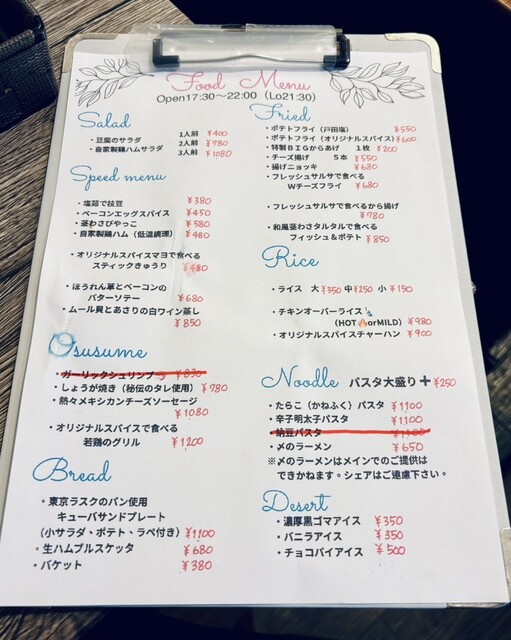 Food Menu
Open17:30〜22:00（Lo21:30）
Salad
・豆腐のサラダ
・自家製鶏ハムサラダ
1人前 ¥400
2人前 ¥780
3人前 ¥1080
Speed menu
・塩茹で枝豆 ¥380
・ベーコンエッグスパイス ¥450
・茎わさびやっこ ¥580
・自家製鶏ハム（低温調理） ¥480
・オリジナルスパイスマヨで食べる
スティックきゅうり ¥480
・ほうれん草とベーコンの
バターソテー ¥680
・ムール貝とあさりの白ワイン蒸し
¥850
Osusume
・ガーリックシュリンプ ¥830
・しょうが焼き（秘伝のタレ使用） ¥780
・熱々メキシカンチーズソーセージ
¥1080
・オリジナルスパイスで食べる
若鶏のグリル ¥1200
Bread
・東京ラスクのパン使用
キューバサンドプレート
（小サラダ、ポテト、ラペ付き） ¥1100
・生ハムブルスケッタ ¥680
・バケット ¥380
Fried
・ポテトフライ（戸田塩） ¥550
・ポテトフライ（オリジナルスパイス） ¥600
・特製ＢＩＧからあげ 1枚 ¥200
・チーズ揚げ 5本 ¥550
・揚げニョッキ ¥680
・フレッシュサルサで食べる
Wチーズフライ ¥680
・フレッシュサルサで食べるから揚げ
¥780
・和風茎わさタルタルで食べる
フィッシュ＆ポテト ¥850
Rice
・ライス 大¥350 中¥250 小 ¥150
・チキンオーバーライス
（HOT🔥orMILD） ¥980
・オリジナルスパイスチャーハン ¥900
Noodle パスタ大盛り＋¥250
・たらこ（かねふく）パスタ ¥1100
・辛子明太子パスタ ¥1100
・納豆パスタ ¥1100
・〆のラーメン ¥650
※〆のラーメンはメインでのご提供は
できかねます。シェアはご遠慮下さい。
Desert
・濃厚黒ゴマアイス ¥350
・バニラアイス ¥350
・チョコパイアイス ¥500